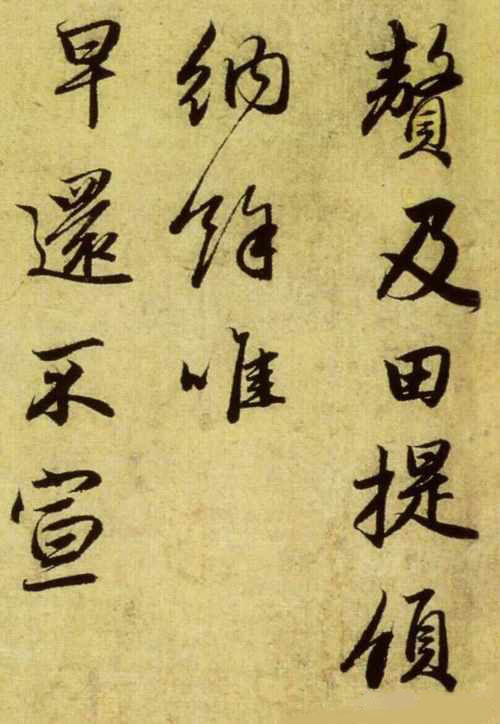 贅及田提領
納餘唯
早還不宣